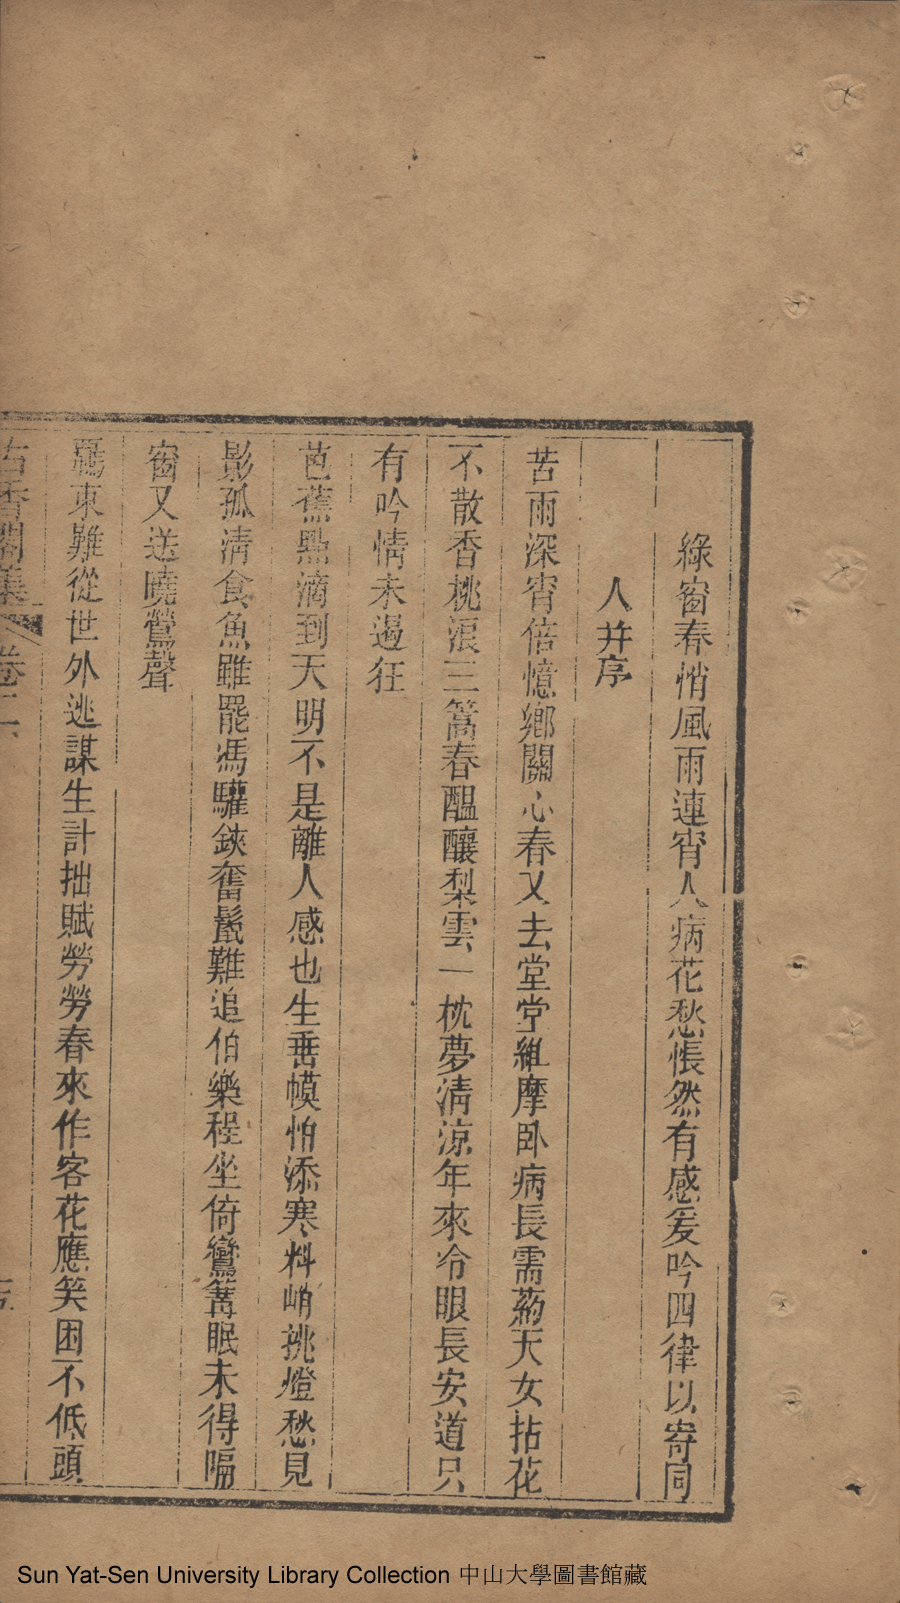 綠窗春悄風雨連宵人病花愁悵然有感爰吟四律以寄同
人并序
苦雨深宵倍憶鄉關心春又去堂堂維摩卧病長需葯天女拈花
不散香桃浪三篙春醞釀梨雲一枕夢清涼年來冷眼長安道只
有吟情未遏狂
芭蕉點滴到天明不是離人感也生垂幙怕添寒料峭挑燈愁見
影孤清食魚雖罷馮驩鋏奮鬛難追伯樂程坐倚鸞篝眠未得隔
窗又送曉鶯聲
羈束難從世外逃謀生計拙賦勞勞春來作客花應笑困不低頭
古香閣集 卷二
Sun Yat-Sen University Library Collection 中山大學圖書館藏